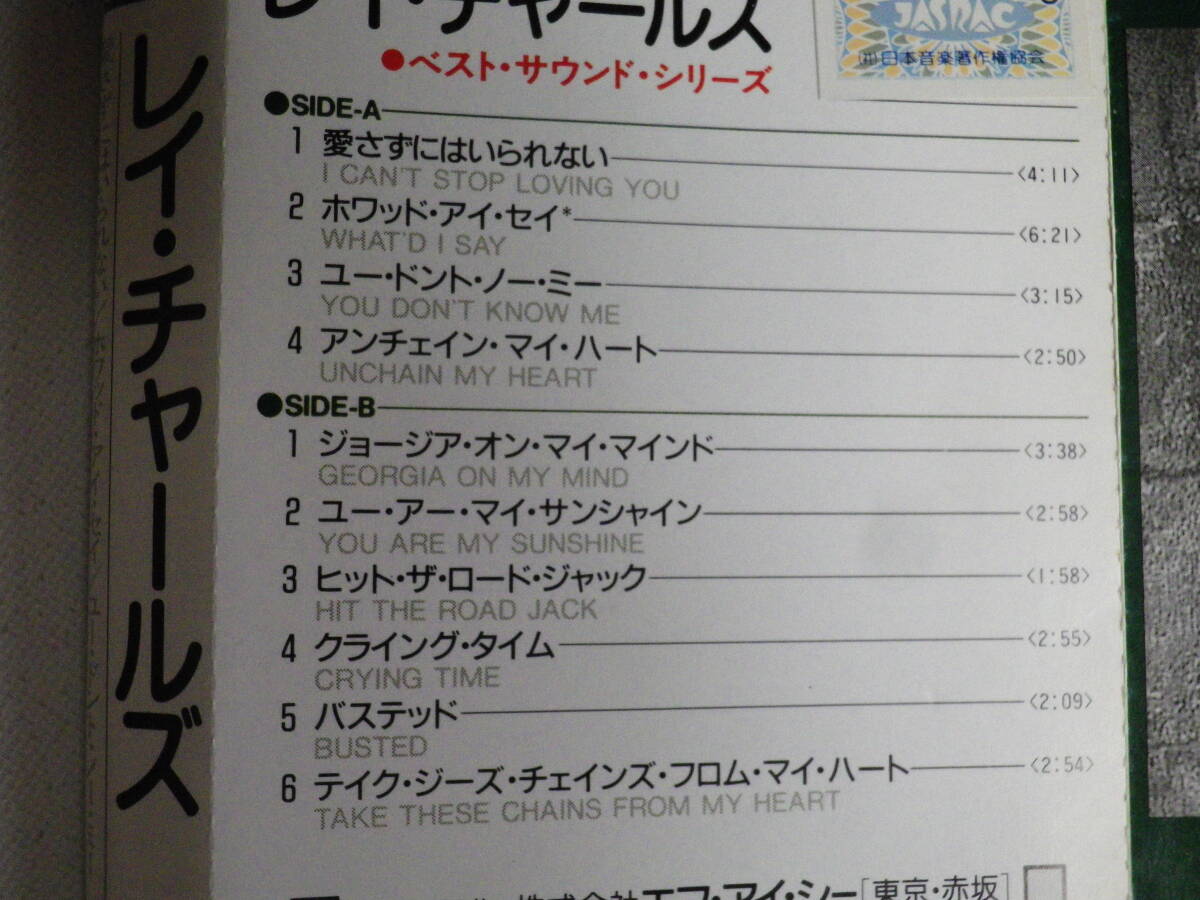 レイ・チャールズ
レイ・チャールズ
JASRAC
日本音楽著作権協会
●ベスト・サウンド・シリーズ
●SIDE-A
1 愛さずにはいられない <4:11>
I CAN'T STOP LOVING YOU
2 ホワッド・アイ・セイ* <6:21>
WHAT'D I SAY
3 ユー・ドント・ノー・ミー <3:15>
YOU DON'T KNOW ME
4 アンチェイン・マイ・ハート <2:50>
UNCHAIN MY HEART
●SIDE-B
1 ジョージア・オン・マイ・マインド <3:38>
GEORGIA ON MY MIND
2 ユー・アー・マイ・サンシャイン <2:58>
YOU ARE MY SUNSHINE
3 ヒット・ザ・ロード・ジャック <1:58>
HIT THE ROAD JACK
4 クライング・タイム <2:55>
CRYING TIME
5 バステッド <2:09>
BUSTED
6 テイク・ジーズ・チェインズ・フロム・マイ・ハート <2:54>
TAKE THESE CHAINS FROM MY HEART
株式会社エフ・アイ・シー[東京・赤坂]